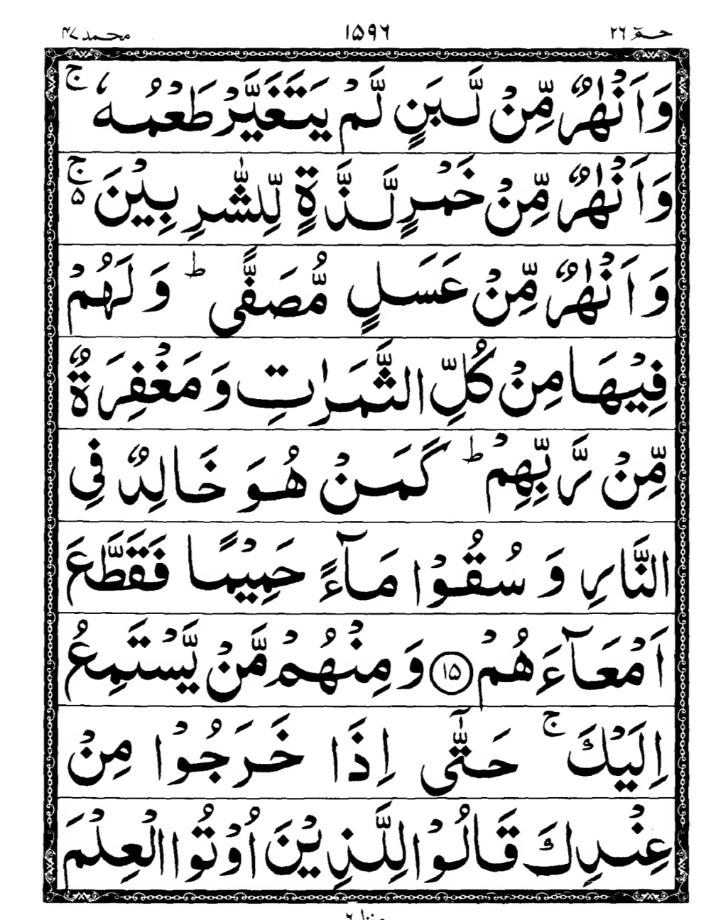 حٰمٓ ٢٦ ١٥٩٦ محمد ٤٧
وَاَنْهٰرٌ مِّنْ لَّبَنٍ لَّمْ يَتَغَيَّرْ طَعْمُهٗ ۚ
وَاَنْهٰرٌ مِّنْ خَمْرٍ لَّذَّةٍ لِّلشّٰرِبِيْنَ ۵ۚ
وَاَنْهٰرٌ مِّنْ عَسَلٍ مُّصَفًّى ؕ وَلَهُمْ
فِيْهَا مِنْ كُلِّ الثَّمَرٰتِ وَمَغْفِرَةٌ
مِّنْ رَّبِّهِمْ ؕ كَمَنْ هُوَ خَالِدٌ فِى
النَّارِ وَسُقُوْا مَآءً حَمِيْمًا فَقَطَّعَ
اَمْعَآءَهُمْ ⁠﴿١٥﴾ وَمِنْهُمْ مَّنْ يَّسْتَمِعُ
اِلَيْكَ ۚ حَتّٰٓى اِذَا خَرَجُوْا مِنْ
عِنْدِكَ قَالُوْا لِلَّذِيْنَ اُوْتُوا الْعِلْمَ
منزل ٦